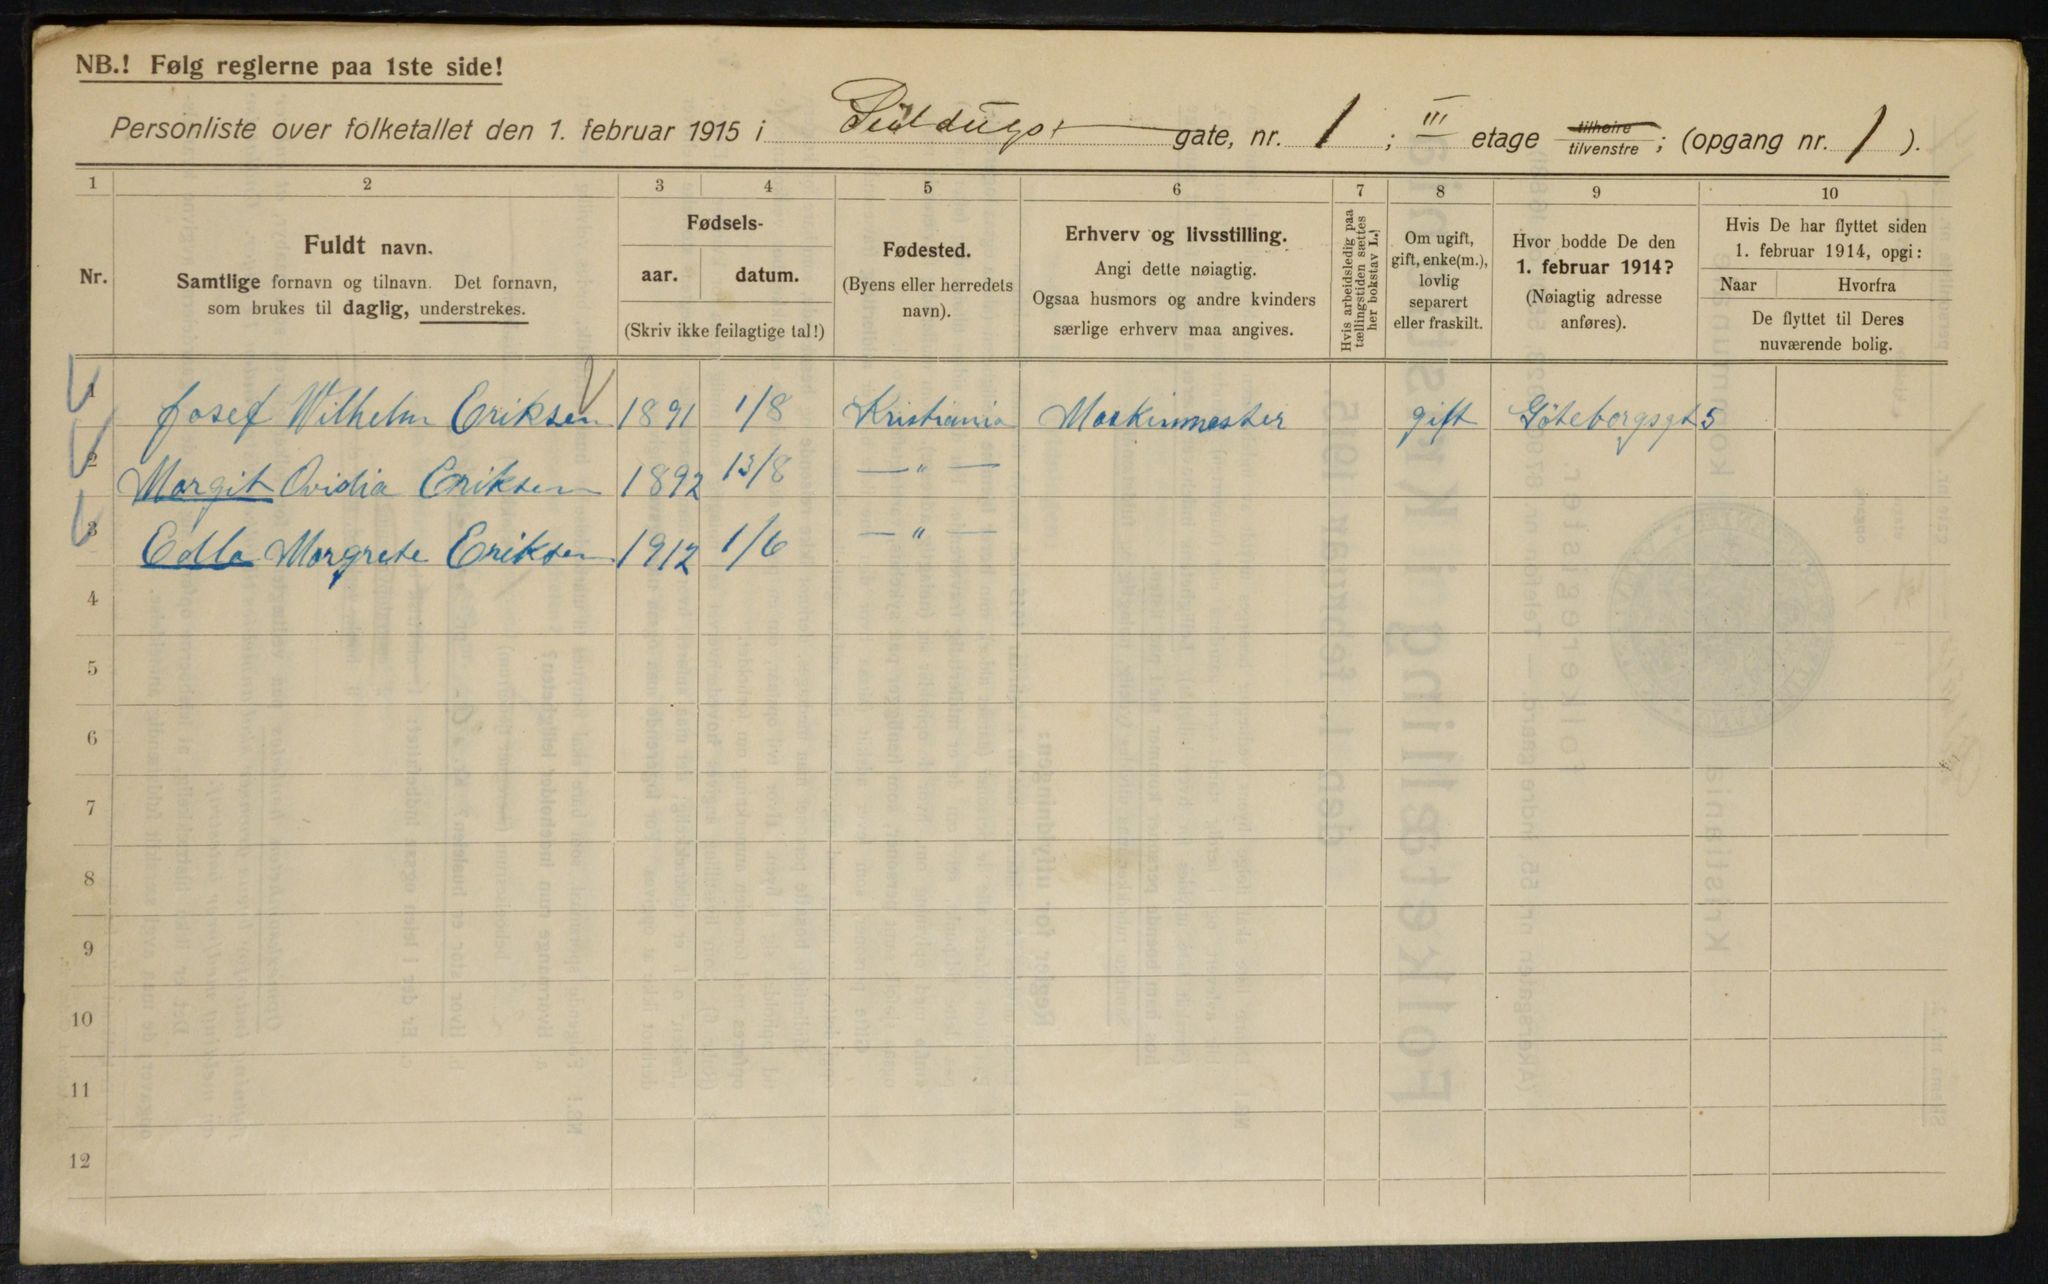 NB.! Følg reglerne paa 1ste side!
Personliste over folketallet den 1. februar 1915 i gate, nr. 1; III etage tilhøire tilvenstre; (opgang nr. 1).
1 2 3 4 5 6 7 8 9 10
Nr.
Fuldt navn.
Samtlige fornavn og tilnavn. Det fornavn,
som brukes til daglig, understrekes.
Fødsels-
aar. datum.
(Skriv ikke feilagtige tal!)
Fødested.
(Byens eller herredets
navn).
Erhverv og livsstilling.
Angi dette nøiagtig.
Ogsaa husmors og andre kvinders
særlige erhverv maa angives.
Hvis arbeidsledig paa
tællingstiden sættes
her bokstav L.!
Om ugift,
gift, enke(m.),
lovlig
separert
eller fraskilt.
Hvor bodde De den
1. februar 1914?
(Nøiagtig adresse
anføres).
Hvis De har flyttet siden
1. februar 1914, opgi:
Naar Hvorfra
De flyttet til Deres
nuværende bolig.
1 Josef Wilhelm Eriksen 1891 1/8 Kristiania Maskinmester gift Göteborgsgt 5
2 Margit Ovidia Eriksen 1892 13/8 — " —
3 Edla Margrete Eriksen 1912 1/6 — " —
4
5
6
7
8
9
10
11
12